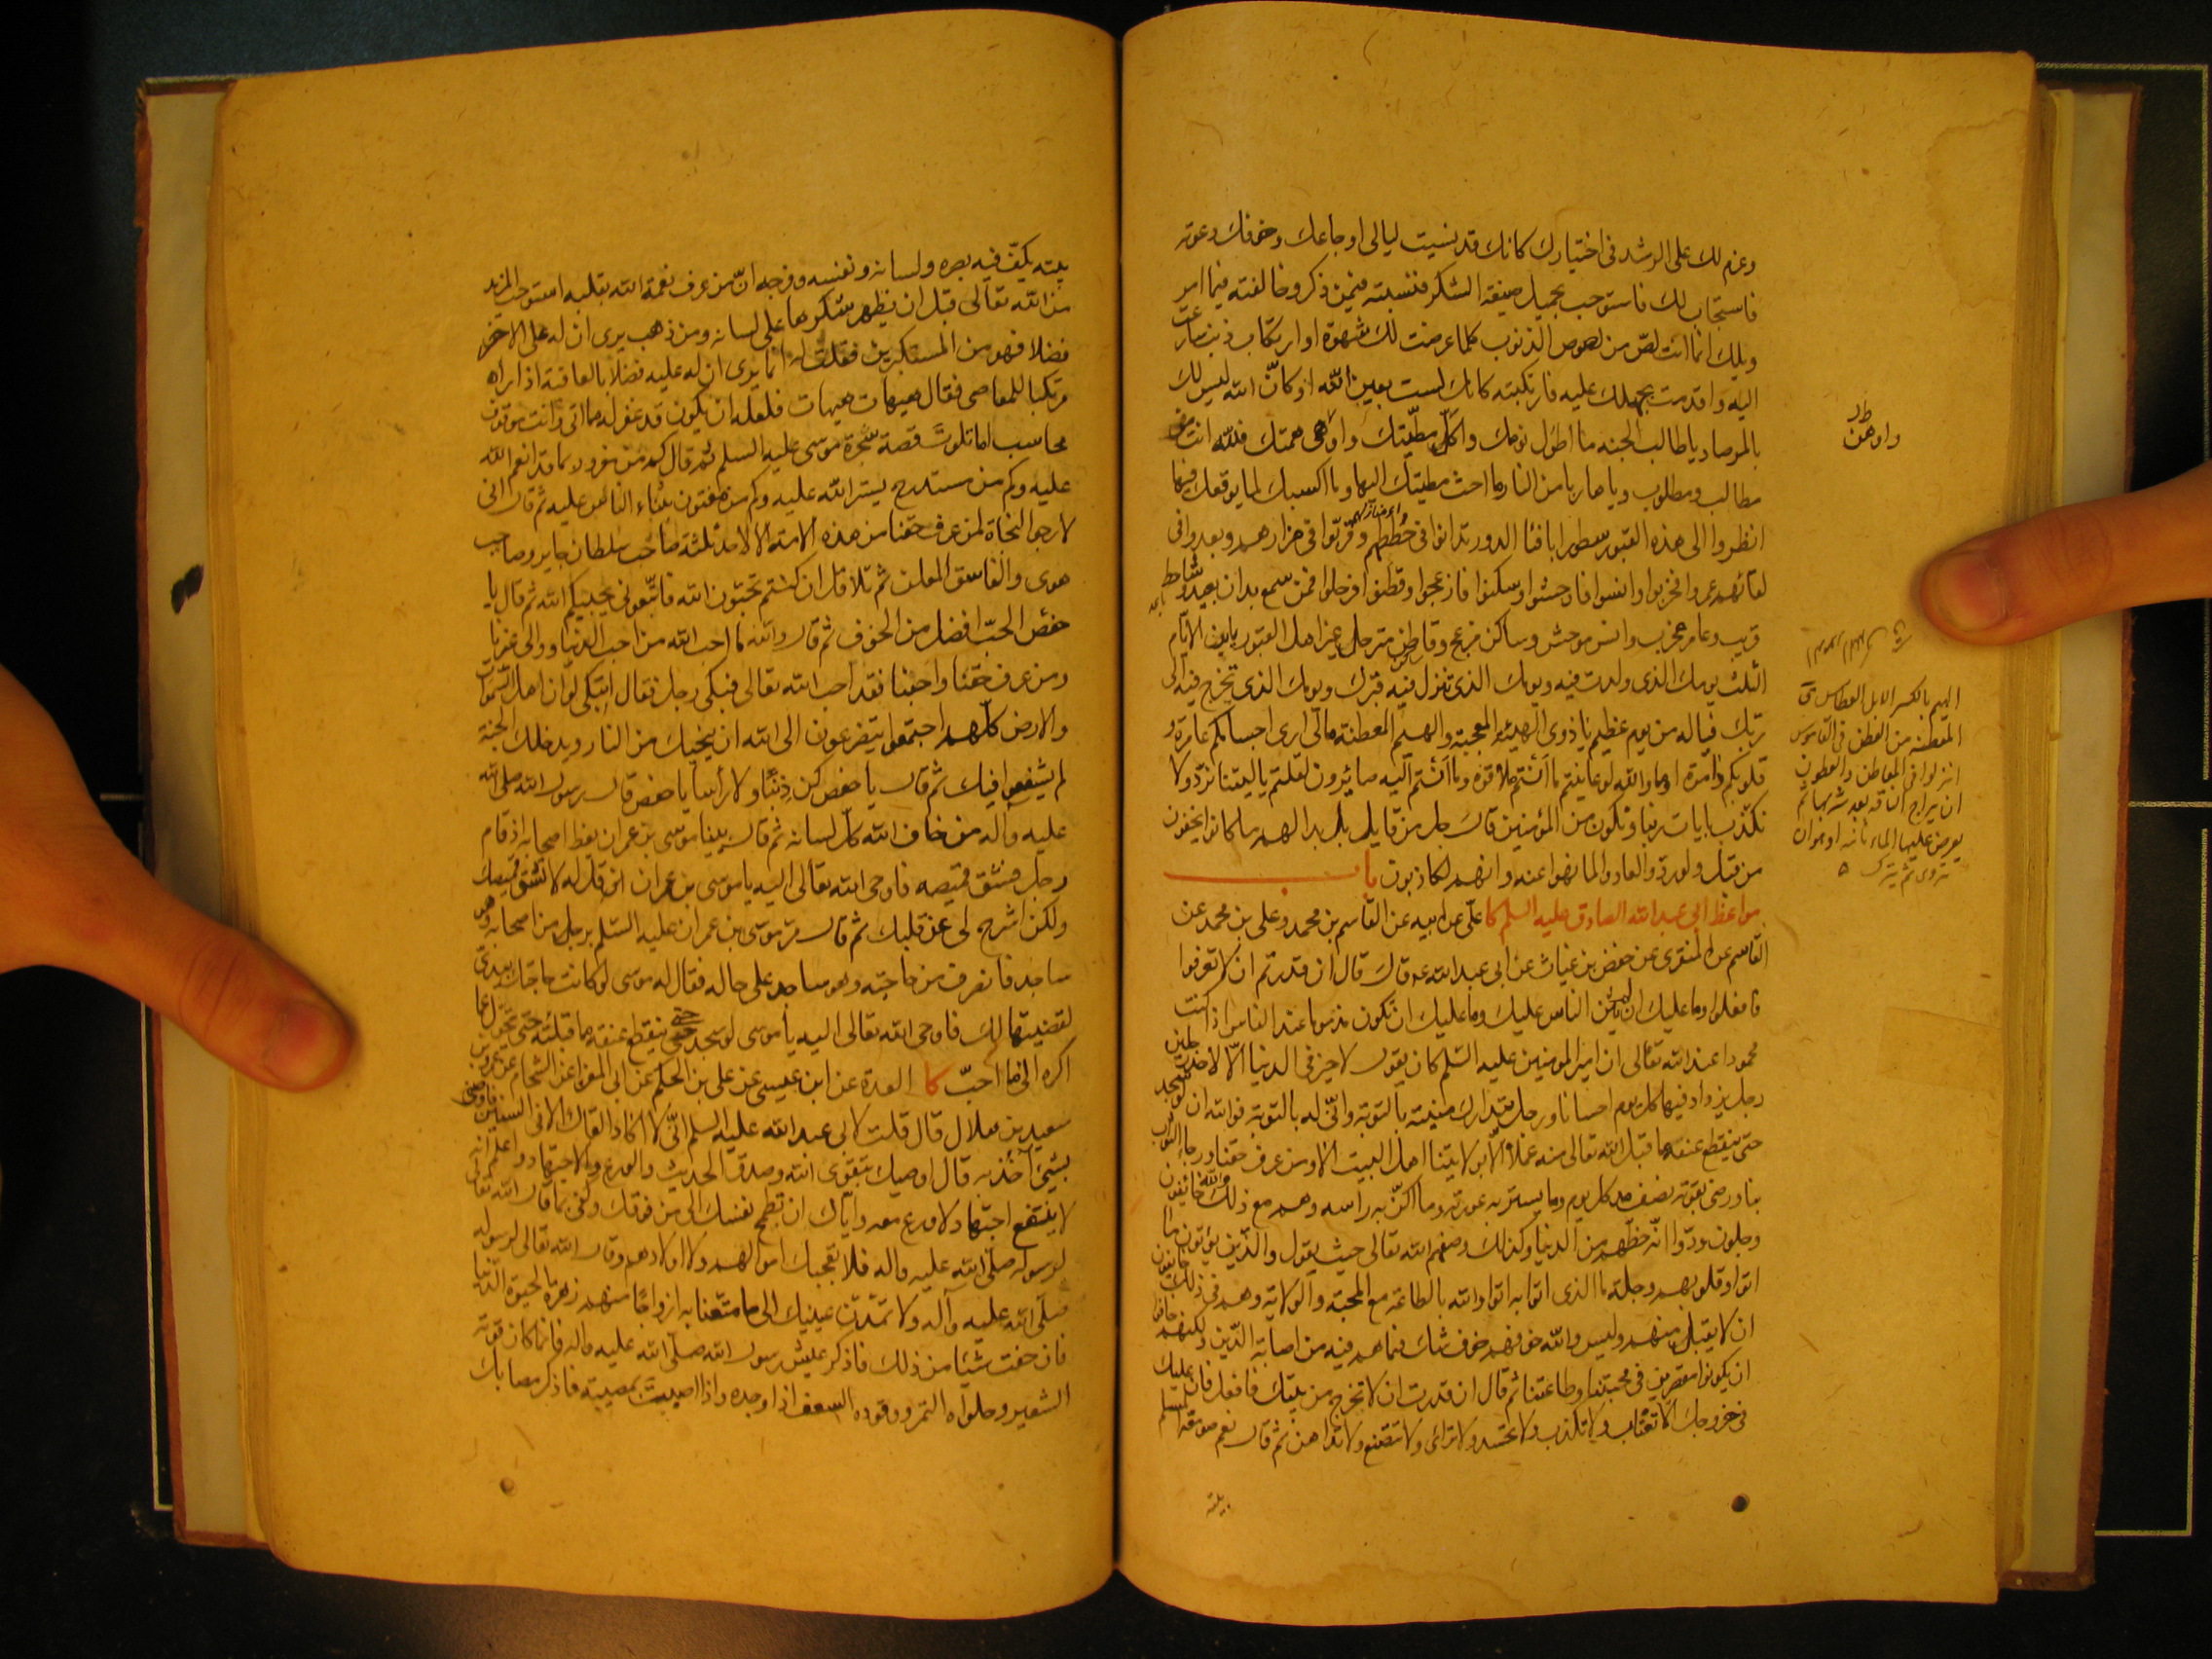 وعزم لك على الرشد فى اختيارك كانك قد نسيت ليالى اوجاعك وخوفك دعوته
فاستجاب لك فاستوجب بجميل صنيعه الشكر فنسيته فيمن ذكر وخالفته فيما امر
ويلك انما انت لص من لصوص الذنوب كلما عرضت لك شهوة او ارتكاب ذنب سارعت
اليه واقدمت بجهلك عليه فارتكبته كانك لست بعين الله او كانّ الله ليس لك
بالمرصاد يا طالب الجنه ما اطول نومك واكلّ مطيّتك واوهى همتك فلله انت من
مطالب ومطلوب ويا هاربا من النار ما احث مطيتك اليها وما اكسبك لما يوقعك فيها
انظروا الى هذه القبور سطورا بافناء الدور تدانوا فى خططهم وقربوا فى مزارهم وبعدوا فى
لقائهم عمروا فخربوا وانسوا فاوحشوا وسكنوا فازعجوا وقطنوا فرحلوا فمن سمع بدان بعيد وشاحط
قريب وعامر مخرب وانس موحش وساكن مزعج وقاطن مترحل غير اهل القبور يا بن الايام
الثلث يومك الذى ولدت فيه ويومك الذى تنزل فيه قبرك ويومك الذى تخرج فيه الى
ربك فياله من يوم عظيم يا ذوى الهيئه المعجبة والهيم المعطنة مالى ارى اجسامكم عامرة و
قلوبكم دامرة اما والله لو عاينتم ما انتم ملاقوه وما انتم اليه صائرون لقلتم يا ليتنا نرد ولا
نكذب بايات ربنا ونكون من المؤمنين قال جل من قايل بل بدا لهم ما كانوا يخفون
من قبل ولو ردوا لعادوا لما نهوا عنه وانهم لكاذبون باب
مواعظ ابى عبد الله الصادق عليه السلم كا على عن ابيه عن القاسم بن محمد وعلى بن محمد عن
القاسم عن المنقرى عن حفص بن غياث عن ابى عبد الله ع قال قال ان قدرتم ان لا تعرفوا
فافعلوا وما عليك ان لم يثن الناس عليك وما عليك ان تكون مذموما عند الناس اذا كنت
محمودا عند الله تعالى ان امير المومنين عليه السلم كان يقول لا خير فى الدنيا الا لاحد رجلين
رجل يزداد فيها كل يوم احسانا ورجل يتدارك منيته بالتوبة وانّى له بالتوبة فوالله ان لو سجد
حتى ينقطع عنقه ما قبل الله تعالى منه عملا الا بولايتنا اهل البيت الا ومن عرف حقنا ورجا الثواب
بنا ورضى بقوته نصف مد كل يوم وما يستر به عورته وما اكنّ به راسه وهم مع ذلك والله خائفون
وجلون ودّوا انّه حظهم من الدنيا وكذلك وصفهم الله تعالى حيث يقول والذين يؤتون ما
اتوا وقلوبهم وجلة ما الذى اتوا به اتوا والله بالطاعة مع المحبة والولاية وهم فى ذلك خايفون
ان لا يقبل منهم وليس والله خوفهم خوف شك فيما هم فيه من اصابة الدين ولكنهم خافوا
ان يكونوا مقصرين فى محبتنا وطاعتنا ثم قال ان قدرت ان لا تخرج من بيتك فافعل فان عليك
فى خروجك الا تغتاب ولا تكذب ولا تحسد ولا ترائى ولا تتصنع ولا تداهن ثم قال نعم صومعة المسلم
بيته
واوهن
الهيم بالكسر الابل العطاش ق
المعطنه من العطن فى القاموس
ان يراح الناقه بعد شربها ثم
يعرض عليها الماء ثانيه او هو ان
تروى ثم يترك
بيته يكفّ فيه بصره ولسانه ونفسه وفرجه انّ من عرف نعمة الله بقلبه استوجب المزيد
من الله تعالى قبل ان يظهر شكرها على لسانه ومن ذهب يرى ان له على الاخر
فضلا فهو من المستكبرين فقلت له انما يرى ان له عليه فضلا بالعافية اذا راه
مرتكبا للمعاصى فقال هيهات هيهات فلعله ان يكون قد غفر له ما اتى وانت موقوف
محاسب اما تلوت قصة سحرة موسى عليه السلم ثم قال كم من مغرور بما قد انعم الله
عليه وكم من مستدرج يستر الله عليه وكم من مفتون بثناء الناس عليه ثم قال انى
لارجو النجاة لمن عرف حقنا من هذه الامة الا لاحد ثلثة صاحب سلطان جاير وصاحب
هوى والفاسق المعلن ثم تلا قل ان كنتم تحبون الله فاتبعونى يحببكم الله ثم قال يا
حفص الحبّ افضل من الخوف ثم قال والله ما احب الله من احب الدنيا ووالى غيرنا
ومن عرف حقنا واحبنا فقد احب الله تعالى فبكى رجل فقال اتبكى لو ان اهل السموات
والارض كلّهم اجتمعوا يتضرعون الى الله ان ينجيك من النار ويدخلك الجنة
لم يشفعوا فيك ثم قال يا حفص كن ذنبا ولا تكن راسا يا حفص قال رسول الله صلى الله
عليه وآله من خاف الله كلّ لسانه ثم قال بينا موسى بن عمران يعظ اصحابه اذ قام
رجل فشق قميصه فاوحى الله تعالى اليه يا موسى بن عمران قل له لا تشق قميصك
ولكن اشرح لى عن قلبك ثم قال مرّ موسى بن عمران عليه السّلم برجل من اصحابه وهو
ساجد فانصرف من حاجته وهو ساجد على حاله فقال له موسى لو كانت حاجتك بيدى
لقضيتها لك فاوحى الله تعالى اليه يا موسى لو سجد حتى ينقطع عنقه ما قبلته حتى يتحول عما
اكره الى ما احبّ كا العدة عن ابن عيسى عن على بن الحكم عن ابى المغرا عن الشحام عن عمرو بن
سعيد بن هلال قال قلت لابى عبد الله عليه السلم انّى لا اكاد القاك الا فى السنين فاوصنى
بشئ آخذ به قال اوصيك بتقوى الله وصدق الحديث والورع والاجتهاد واعلم انه
لا ينفع اجتهاد لا ورع معه واياك ان تطمح نفسك الى من فوقك وكفى بما قال الله تعالى
لرسوله صلّى الله عليه واله فلا تعجبك اموالهم ولا اولادهم وقال الله تعالى لرسوله
صلّى الله عليه وآله ولا تمدّنّ عينيك الى ما متعنا به ازواجا منهم زهرة الحيوة الدنيا
فان خفت شيئا من ذلك فاذكر عيش رسول الله صلّى الله عليه واله فانما كان قوته
الشعير وحلواه التمر ووقوده السعف اذا وجده واذا اصبت بمصيبة فاذكر مصابك